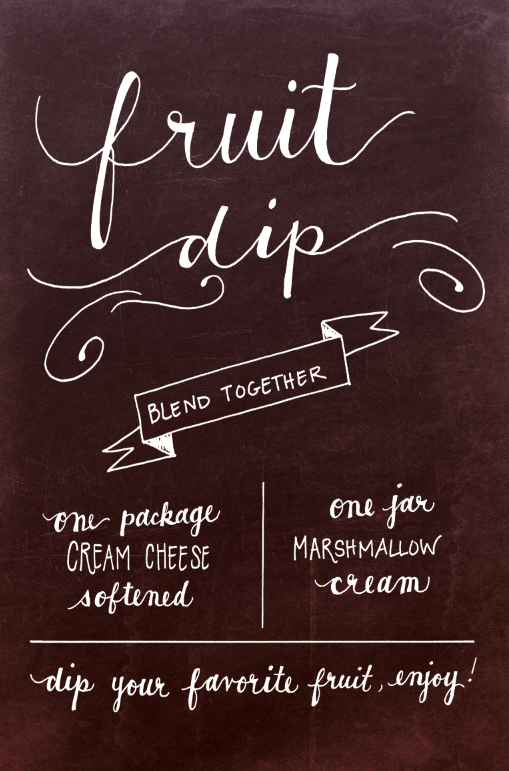 fruit
dip
BLEND TOGETHER
one package
CREAM CHEESE
softened
one jar
MARSHMALLOW
cream
dip your favorite fruit, enjoy!